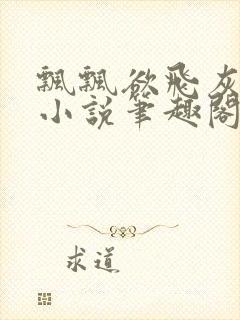 飄飄欲飛灰
小說筆趣閣
求道